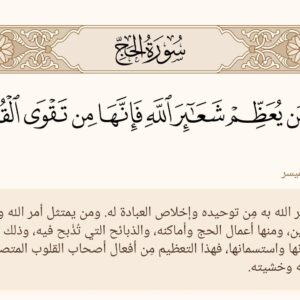 سُورَةُ الحَجِّ
يُعَظِّمْ شَعَٰٓئِرَ ٱللَّهِ فَإِنَّهَا مِن تَقْوَى
يسر
الله به مِن توحيده وإخلاص العبادة له. ومن يمتثل أمر الله و
ين، ومنها أعمال الحج وأماكنه، والذبائح التي تُذْبَح فيه، وذلك
ها واستسمانها، فهذا التعظيم مِن أفعال أصحاب القلوب المتص
ه وخشيته.